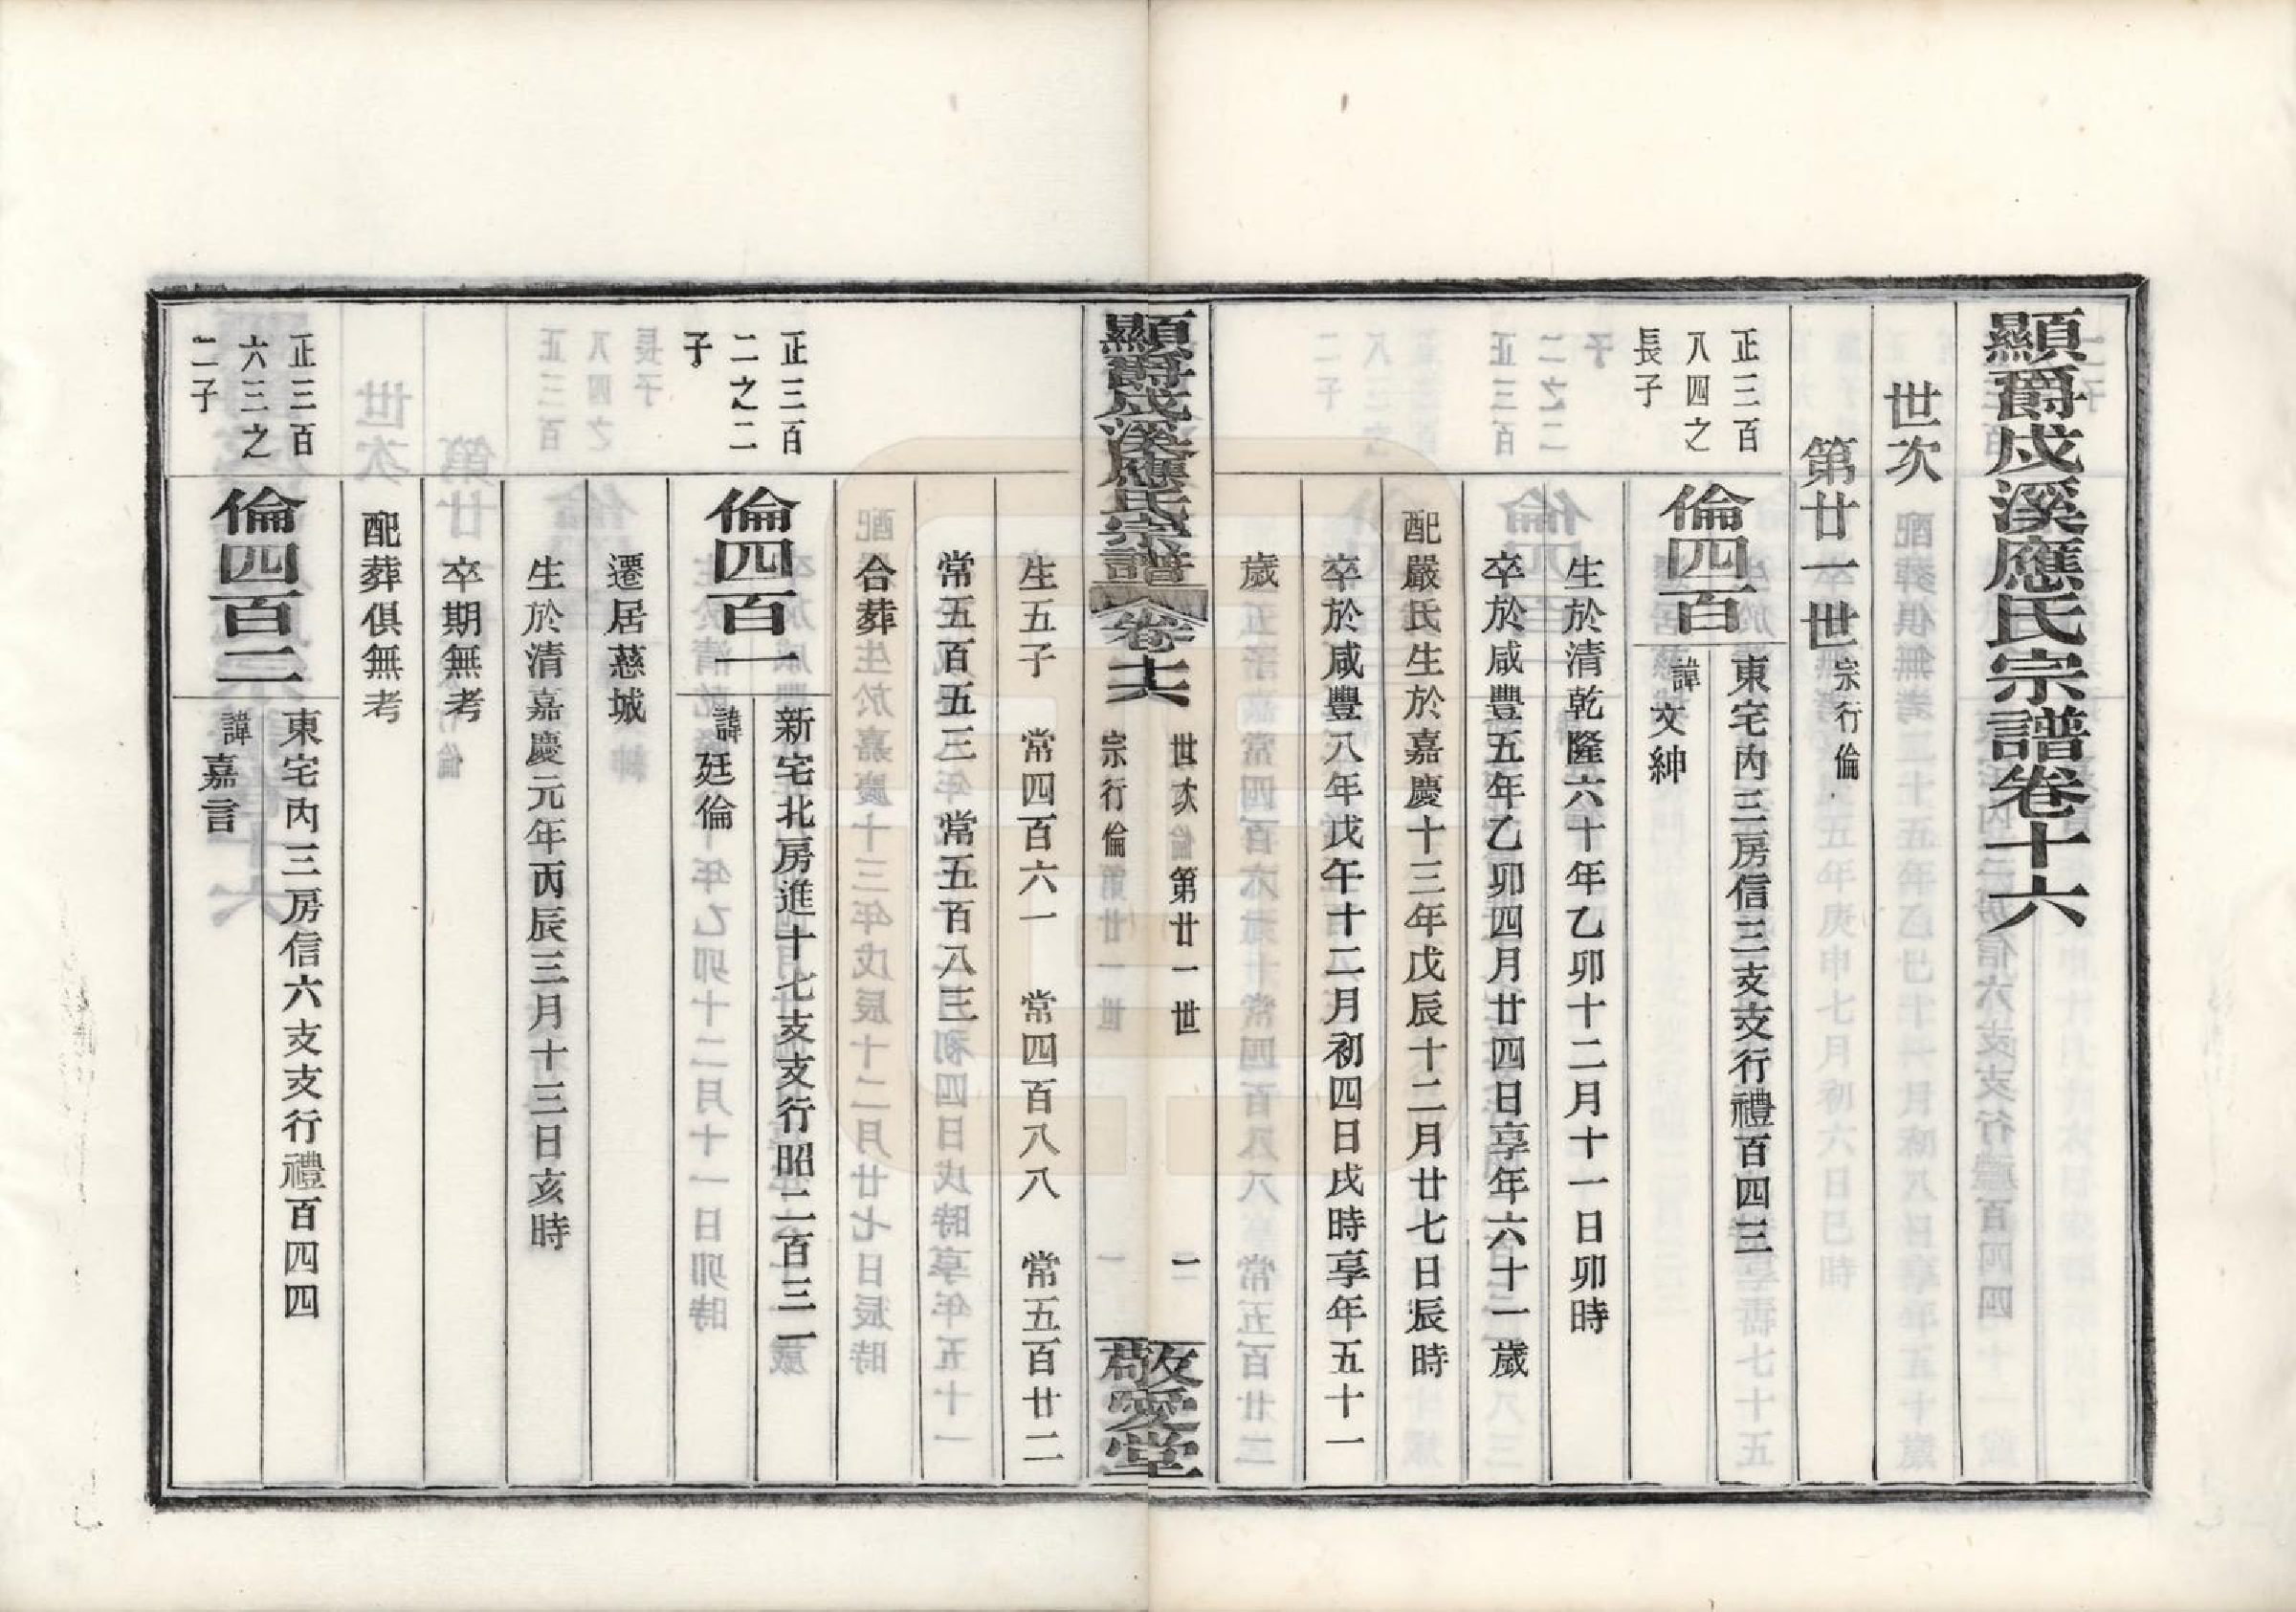 顯爵戍溪應氏宗譜卷十六
世次
第廿一世宗行倫
正三百
八四之
長子
倫四百
東宅內三房信三支支行禮百四三
諱文紳
生於清乾隆六十年乙卯十二月十一日卯時
卒於咸豐五年乙卯四月廿四日享年六十一歲
配嚴氏生於嘉慶十三年戊辰十二月廿七日辰時
卒於咸豐八年戊午十二月初四日戌時享年五十一
歲
顯爵戍溪應氏宗譜 卷十六
世次 第廿一世 一
宗行倫
敬愛堂
生五子 常四百六一 常四百八八 常五百廿二
常五百五三 常五百八三
合葬
正三百
二之二
子
倫四百一
新宅北房進十七支支行昭二百三一
諱廷倫
遷居慈城
生於清嘉慶元年丙辰三月十三日亥時
卒期無考
配葬俱無考
正三百
六三之
二子
倫四百二
東宅內三房信六支支行禮百四四
諱嘉言